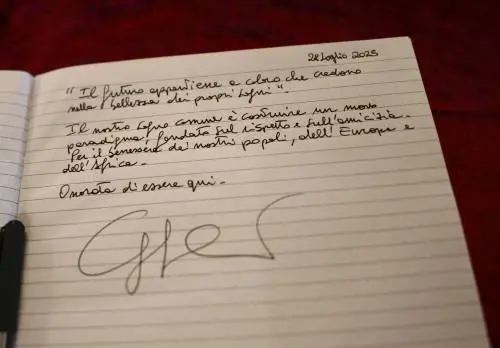 28 Luglio 2025
"Il futuro appartiene a coloro che credono
nella bellezza dei propri sogni".
Il nostro sogno comune è costruire un nuovo
paradigma, fondato sul rispetto e sull'amicizia.
Per il benessere dei nostri popoli, dell'Europa e
dell'Africa.
Onorata di essere qui.